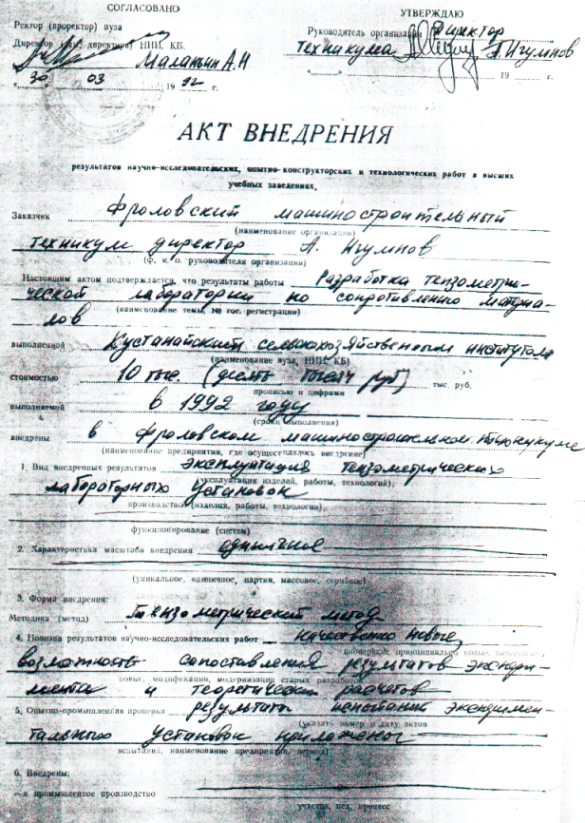 СОГЛАСОВАНО
УТВЕРЖДАЮ
Ректор (проректор) вуза
Руководитель организации Директор
техникума А. Игумнов
Директор директора) НИИ, КБ.
Маланьин А.Н
« 30 » 03 19 92 г.
« » 19 г.
АКТ ВНЕДРЕНИЯ
результатов научно-исследовательских, опытно-конструкторских и технологических работ в высших
учебных заведениях,
Заказчик Фроловский машиностроительный
(наименование организации)
техникум директор А. Игумнов
(ф. и. о. руководителя организации)
Настоящим актом подтверждается, что результаты работы Разработка тензометри-
ческой лаборатории по сопротивлению материа-
(наименование темы, № гос. регистрации)
лов
выполненной Кустанайским сельскохозяйственным институтом
(наименование вуза, НИИ, КБ)
стоимостью 10 тыс. (десять тысяч руб) тыс. руб.
прописью и цифрами
выполняемой в 1992 году
(сроки выполнения)
внедрены в Фроловском машиностроительном техникуме
(наименование предприятия, где осуществлялось внедрение)
1. Вид внедренных результатов эксплуатация тензометрических
(эксплуатация изделий, работы, технологий),
лабораторных установок
производство (изделия, работы, технологии),
функционирование (систем)
2. Характеристика масштаба внедрения единичное
(уникальное, единичное, партия, массовое, серийное)
3. Форма внедрения:
Методика (метод) Тензометрический метод
4. Новизна результатов научно-исследовательских работ качественно новые,
возможность сопоставления результатов экспери-
новые, модификации, модернизация старых разработок
мента и теоретических расчетов
5. Опытно-промышленная проверка результаты испытаний эксперимен-
(указать номер и дату актов
тальных установок приложены
испытаний, наименование предприятия, период)
6. Внедрены:
— в промышленное производство
участок, цех, процесс